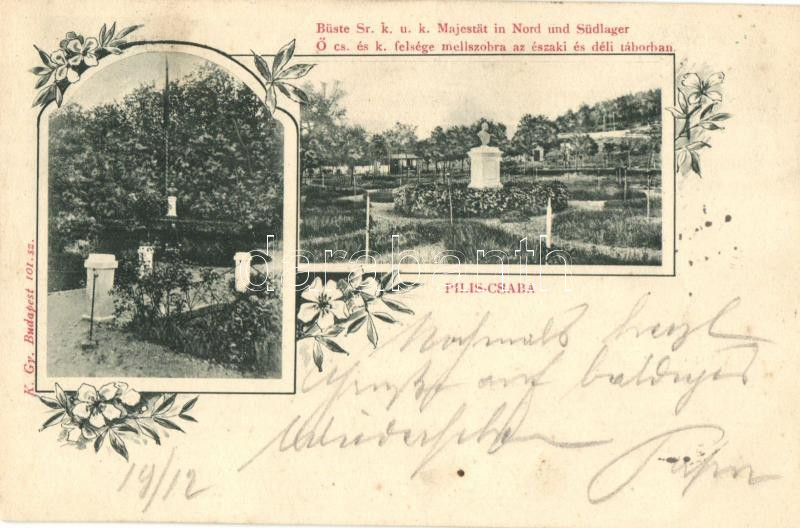 Büste Sr. k. u. k. Majestät in Nord und Südlager
Ő cs. és k. felsége mellszobra az északi és déli táborban
K. Gy. Budapest 101. sz.
darabanth
PILIS-CSABA
Nochmals herzl
Gruß auf baldiges
Wiedersehen
19/12